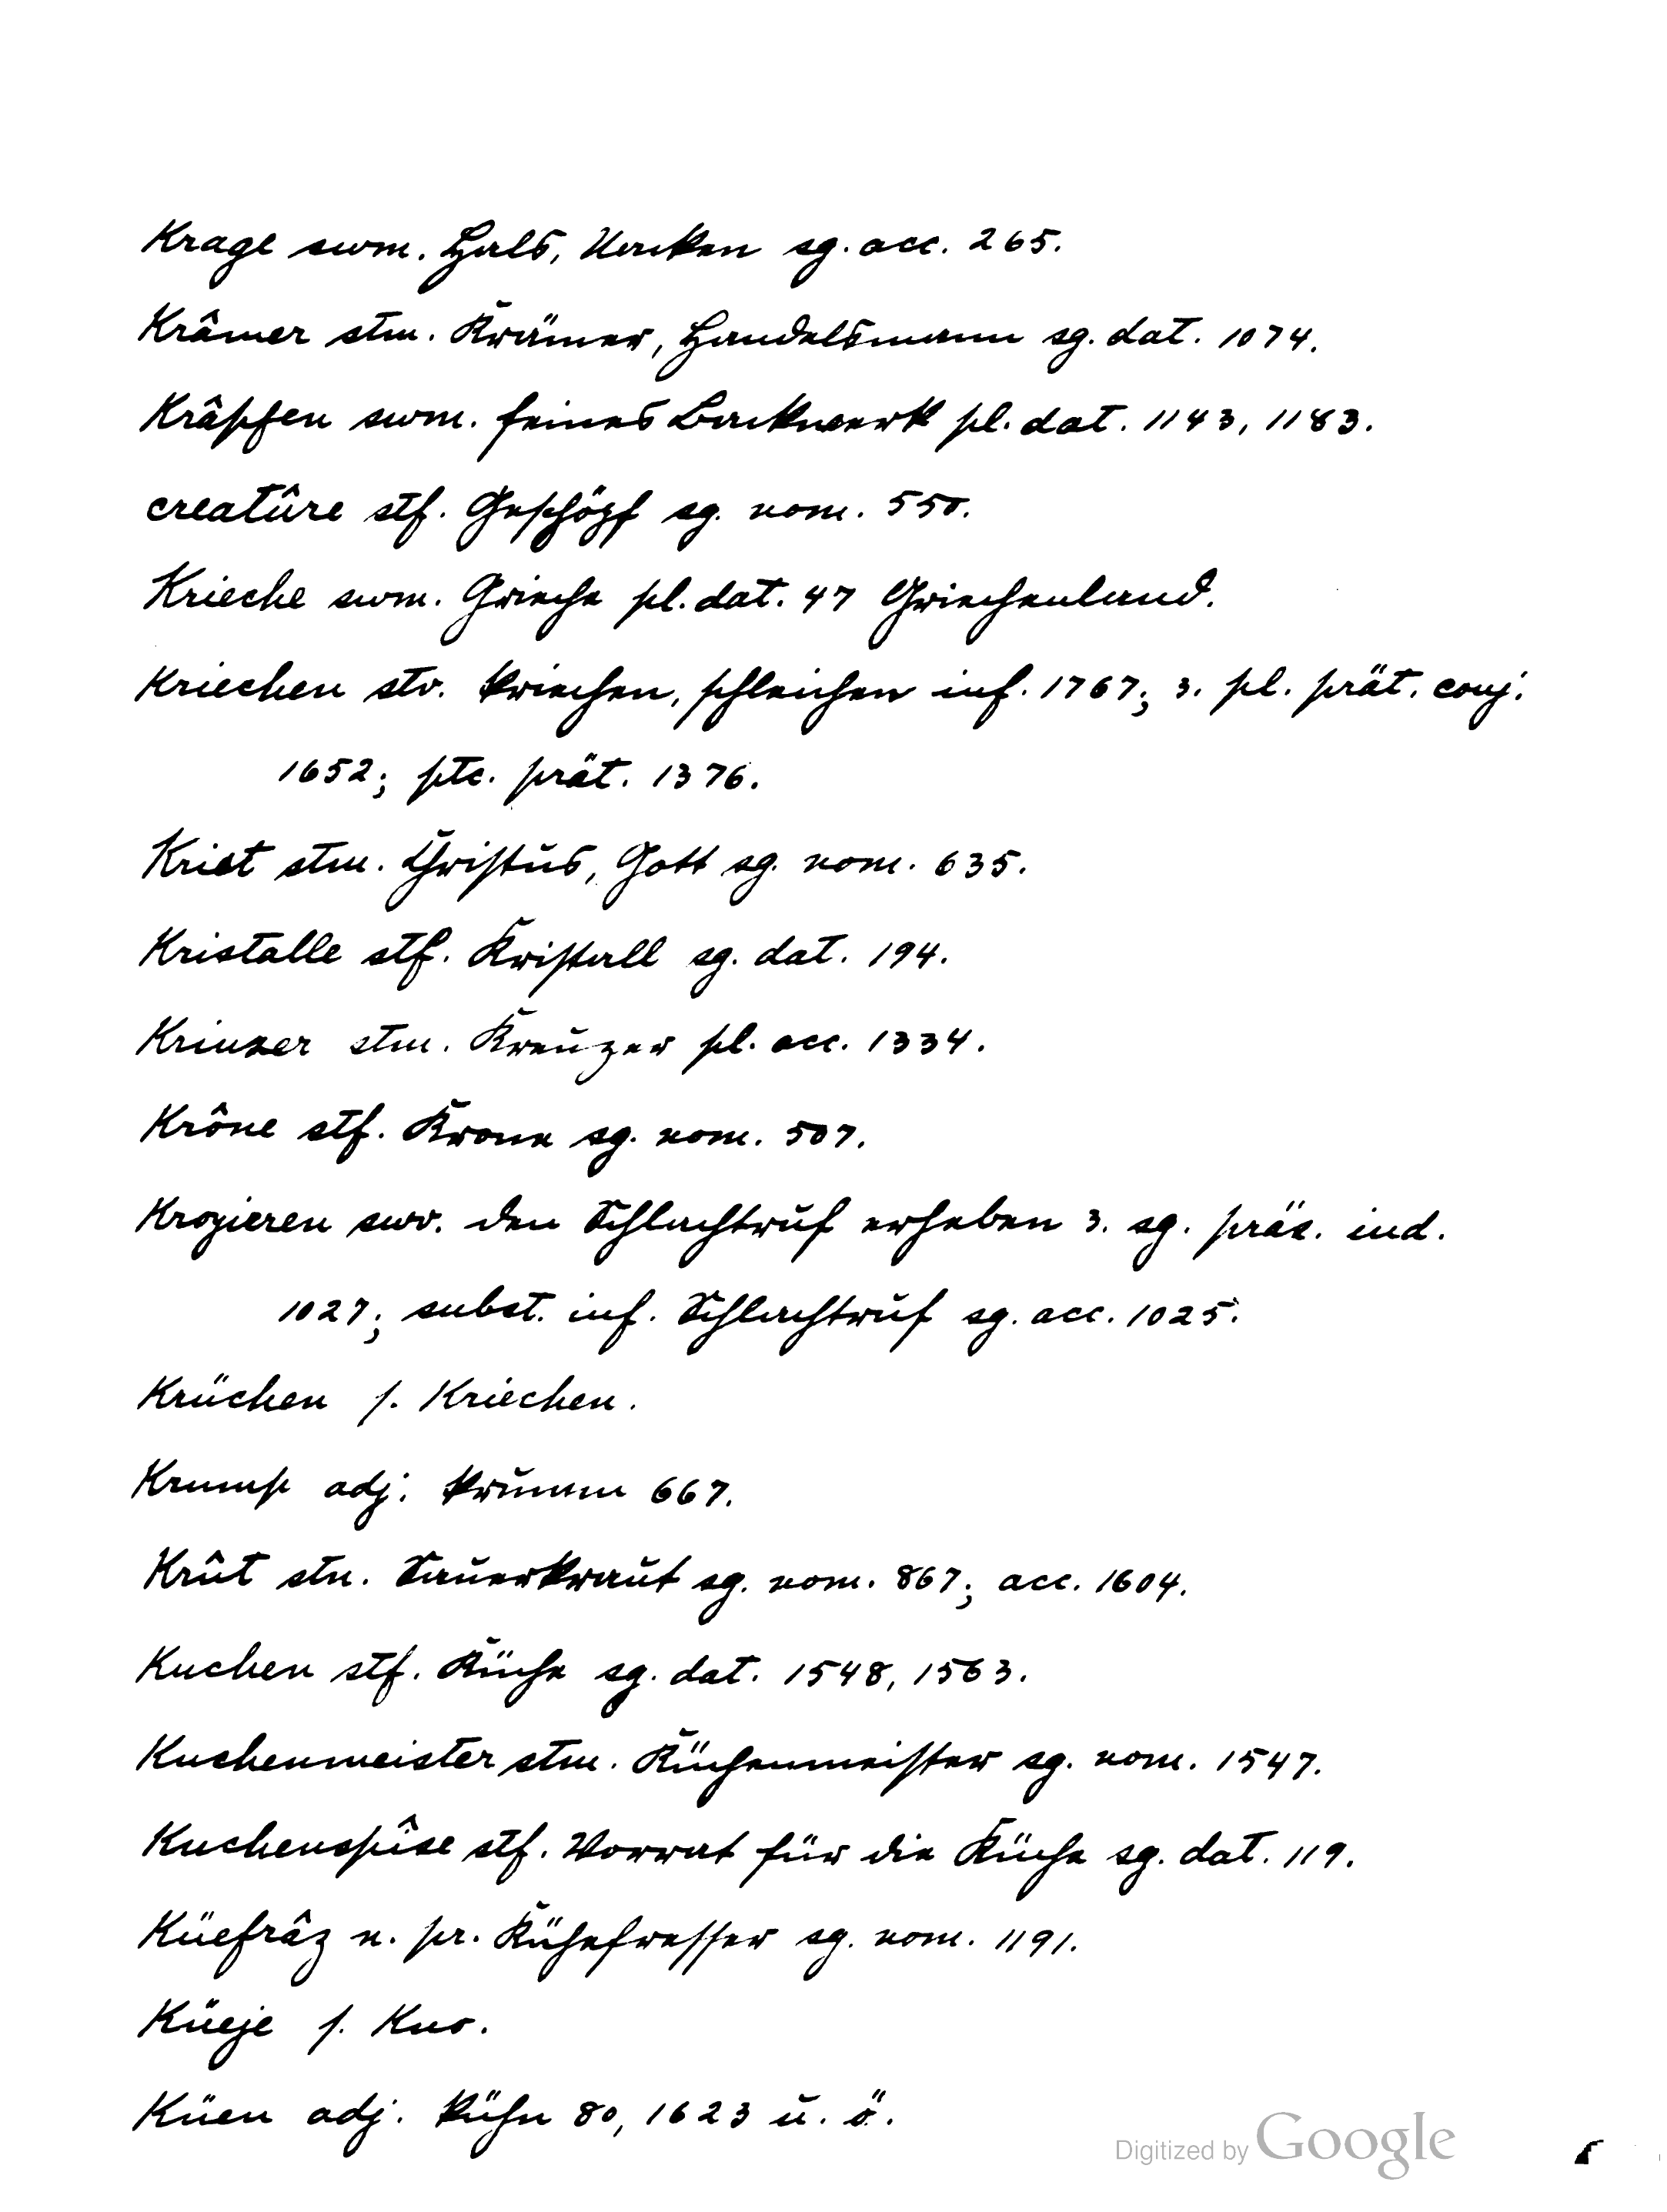 Krage swm. Hals, Nacken sg. acc. 265.
Krâmer stm. Krämer, Handelsmann sg. dat. 1074.
Krâpfen swm. feines Backwerk pl. dat. 1143, 1183.
creatûre stf. Geschöpf sg. nom. 550.
Krieche swm. Grieche pl. dat. 47 Griechenland.
Kriechen stv. kriechen, schleichen inf. 1767; 3. pl. prät. conj.
1652; ptc. prät. 1376.
Krist stm. Christus, Gott sg. nom. 635.
Kristalle stf. Kristall sg. dat. 194.
Kriuzer stm. Kreuzer pl. acc. 1334.
Krône stf. Krone sg. nom. 507.
Kroyieren swv. den Schlachtruf erheben 3. sg. präs. ind.
1027; subst. inf. Schlachtruf sg. acc. 1025.
Krüchen s. Kriechen.
Krump adj. krumm 667.
Krût stn. Sauerkraut sg. nom. 867; acc. 1604.
Kuchen stf. Küche sg. dat. 1548, 1563.
Kuchenmeister stm. Küchenmeister sg. nom. 1547.
Kuchenspîse stf. Vorrat für die Küche sg. dat. 119.
Küefrâz n. pr. Kühefresser sg. nom. 1191.
Küeje s. Kuo.
Küen adj. kühn 80, 1623 u. ö.
Digitized by Google